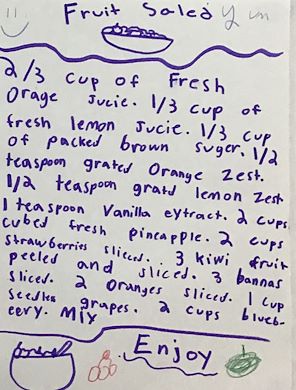 Fruit Salad Yum
2/3 cup of Fresh
Orage Jucie. 1/3 cup of
fresh lemon Jucie. 1/3 cup
of packed brown suger. 1/2
teaspoon grated Orange Zest.
1/2 teaspoon gratd lemon Zest
1 teaspoon Vanilla eytract. 2 cups
cubed fresh pineapple. 2 cups
strawberries sliced. 3 kiwi fruit
peeled and sliced. 3 bannas
sliced. 2 Oranges sliced. 1 cup
Seedles grapes. 2 cups blueb-
eery. Mix
Enjoy